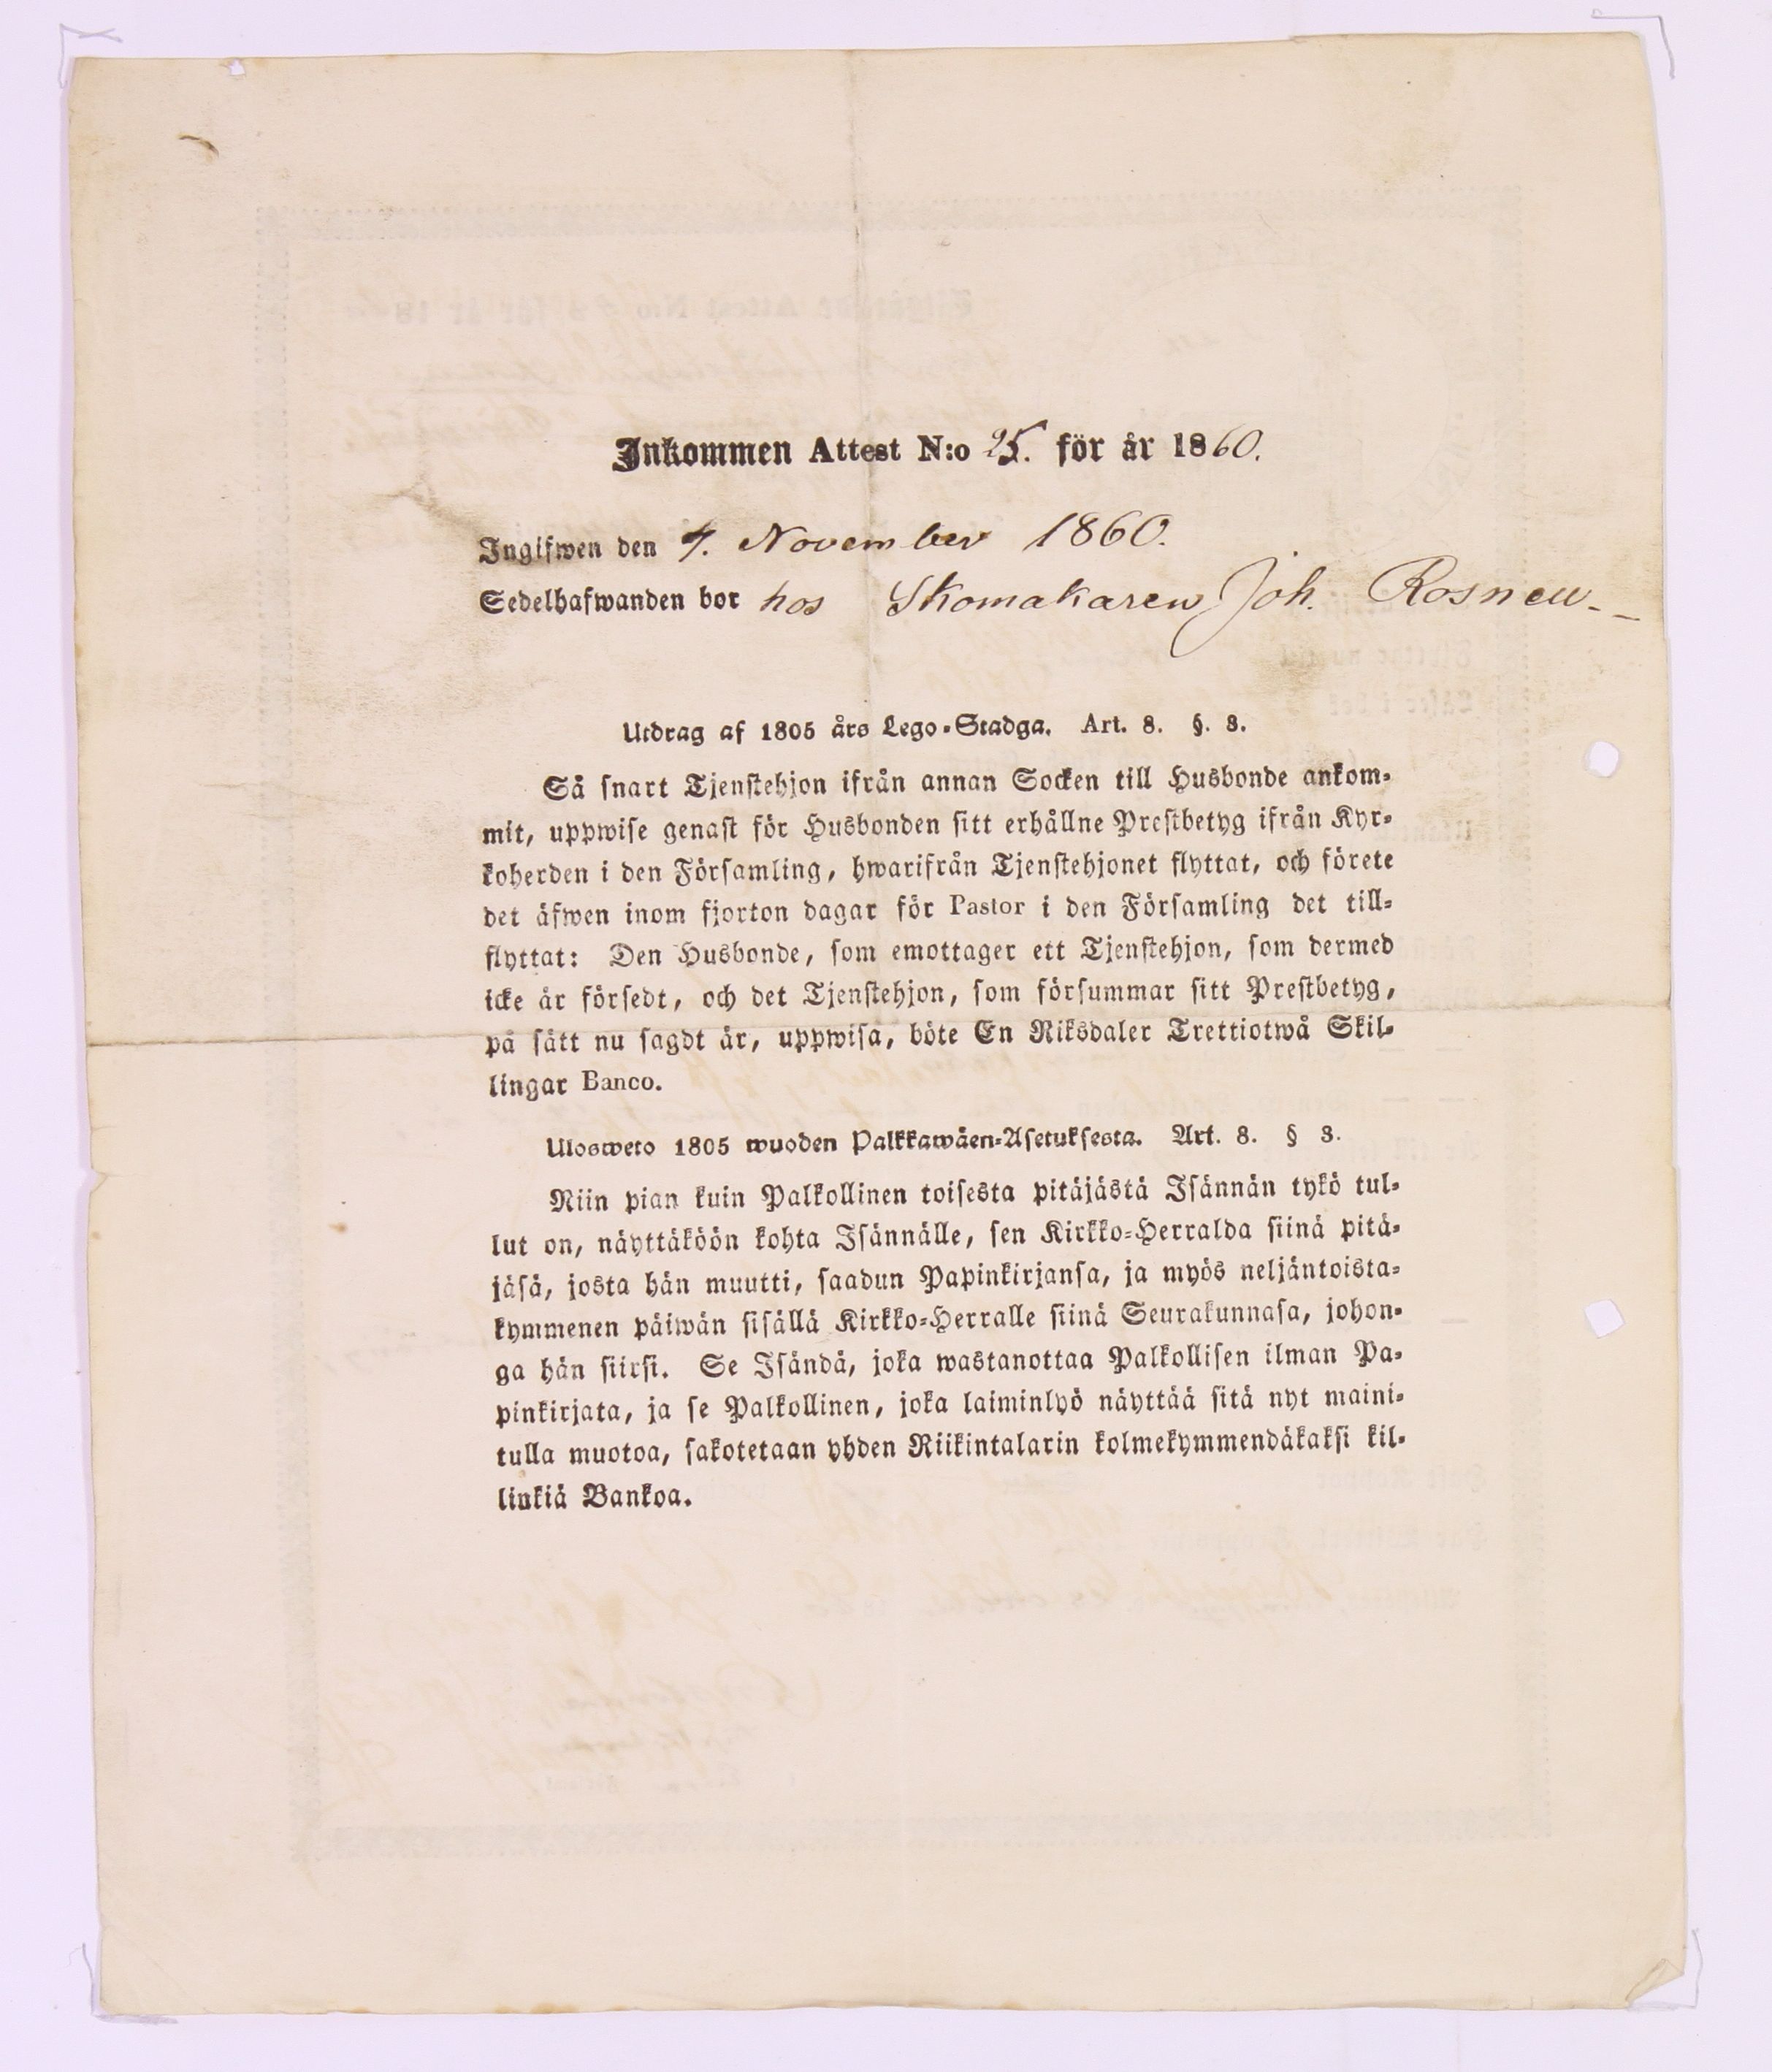 Inkommen Attest N:o 25. för år 1860.
Ingifwen den 4. November 1860.
Sedelhafwanden bor hos Skomakaren Joh.
Utdrag af 1805 års Lego-Stadga. Art. 8. §. 3.
Så snart Tjenstehjon ifrån annan Socken till Husbonde ankom-
mit, uppwise genast för Husbonden sitt erhållne Prestbetyg ifrån Kyr-
koherden i den Församling, hwarifrån Tjenstehjonet flyttat, och förete
det äfwen inom fjorton dagar för Pastor i den Församling det till-
flyttat: Den Husbonde, som emottager ett Tjenstehjon, som dermed
icke är försedt, och det Tjenstehjon, som försummar sitt Prestbetyg,
på sätt nu sagdt är, uppwisa, böte En Riksdaler Trettiotwå Skil-
lingar Banco.
Ulosweto 1805 wuoden Palkkawäen-Asetuksesta. Art. 8. § 3.
Niin pian kuin Palkollinen toisesta pitäjästä Isännän tykö tul-
lut on, näyttäköön kohta Isännälle, sen Kirkko-Herralda siinä pitä-
jäsä, josta hän muutti, saadun Papinkirjansa, ja myös neljäntoista-
kymmenen päiwän sisällä Kirkko-Herralle siinä Seurakunnasa, johon-
ga hän siirsi. Se Isändä, joka wastanottaa Palkollisen ilman Pa-
pinkirjata, ja se Palkollinen, joka laiminlyö näyttää sitä nyt maini-
tulla muotoa, sakotetaan yhden Riikintalarin kolmekymmendäkaksi kil-
linkiä Bankoa.